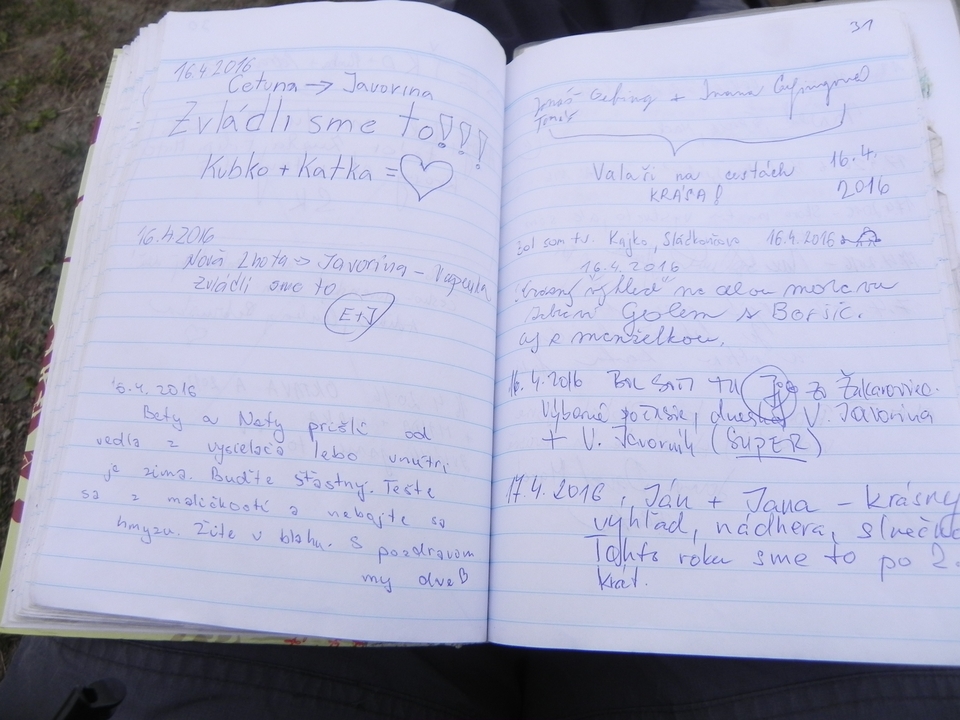 16.4.2016
Cetuna → Javorina
Zvládli sme to!!!
Kubko + Katka =
16.4.2016
Nová Lhota → Javorina -
zvládli sme to
E+J
16.4. 2016
Bety a Nety prišli od
vedľa z vysielača lebo vnútri
je zima. Buďte šťastný. Tešte
sa z maličkostí a nebojte sa
hmyzu. Žite v blahu. S pozdravom
my dve
31
+ Ivana
Tomáš
Valaši na cestách 16.4.
KRÁSA! 2016
bol som tu. Kajko, 16.4.2016
16.4.2016
výhled na celou moravu
Golem z Boršic.
aj z manželkou.
16.4.2016 Bol som tu zo Žakaroviec.
Výborné počasie, dneska V. Javorina
+ V. Javorník (SUPER)
17.4. 2016, Ján + Jana - krásny
výhľad, nádhera, slnečno
Tohto roku sme to po 2.
krát.